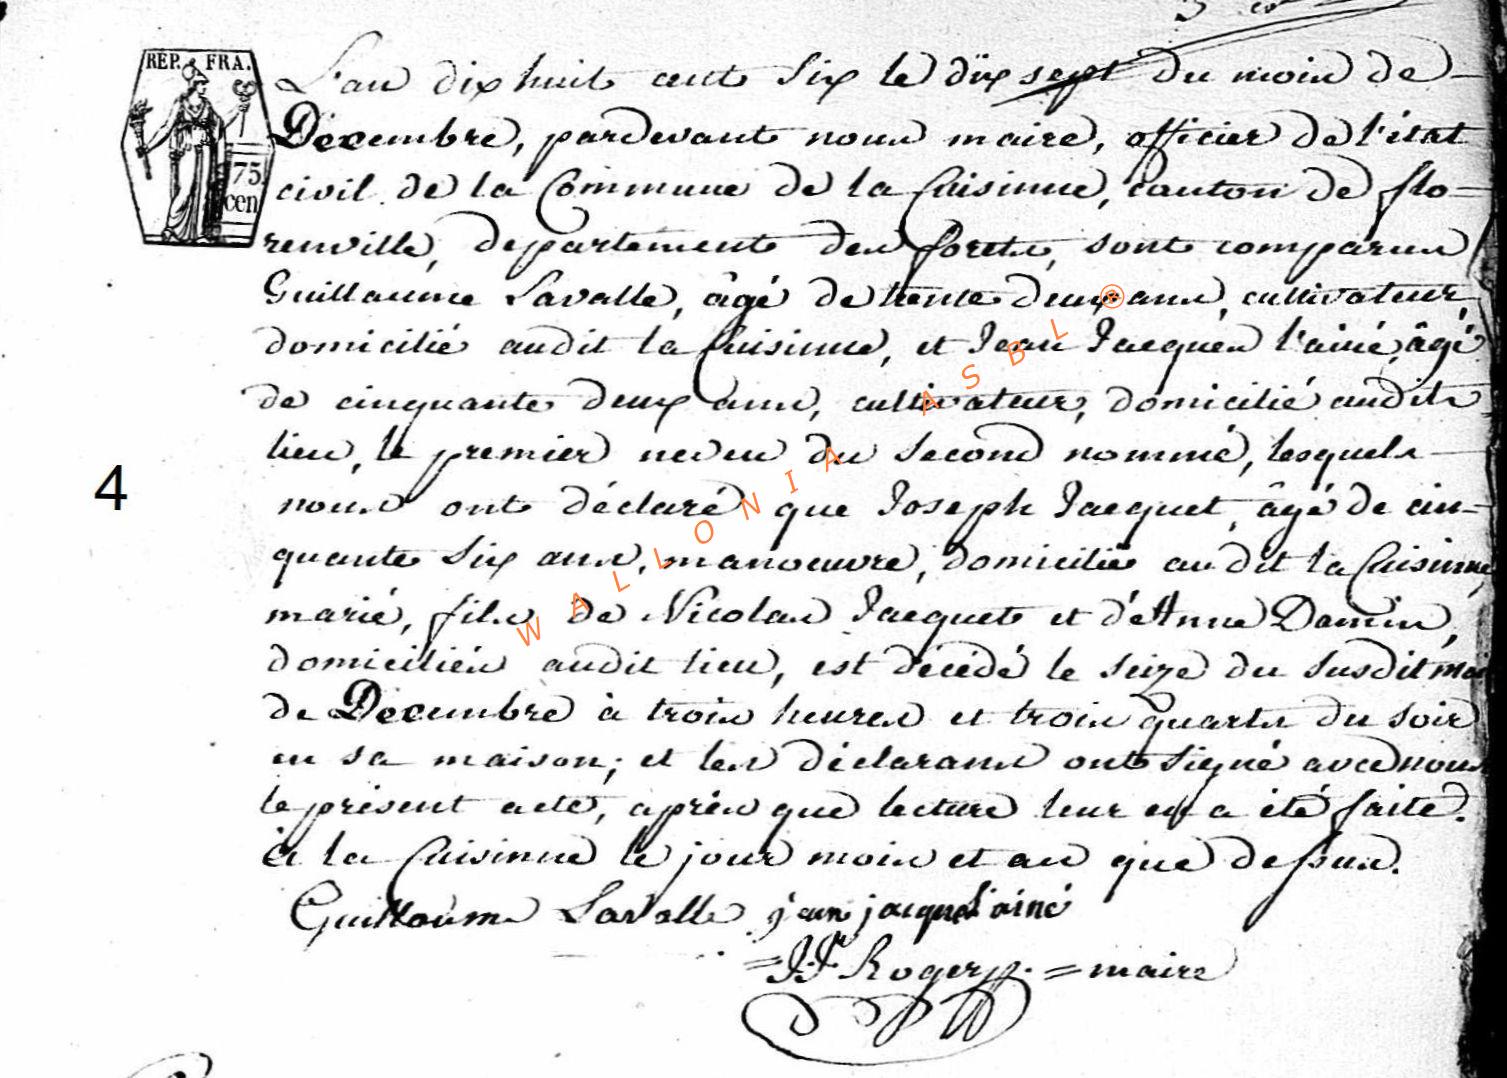 REP. FRA.
75
cen
L'an dix huit cent six le dix sept du mois de
Décembre, pardevant nous maire, officier de l'état
civil de la Commune de la Cuisinne, canton de flo=
renville, departement des forets, sont comparus
Guillaume Lavalle, âgé de trente deux ans, cultivateur,
domicilié audit la Cuisinne, et Jean Jacques l'ainé, âgé
de cinquante deux ans, cultivateur, domicilié audit
lieu, le premier neveu du second nommé, lesquels
nous ont déclaré que Joseph Jacquet, âgé de cin=
quante six ans, manoeuvre, domicilié audit la Cuisinne,
marié, fils de Nicolas Jacquet et d'Anne Damin,
domiciliés audit lieu, est décédé le seize du susdit mois
de Décembre à trois heures et trois quarts du soir
en sa maison; et les déclarans ont signé avec nous
le présent acte, après que lecture leur en a été faite.
à la Cuisinne le jour mois et an que dessus.
Guillaume Lavalle jean jacque l'ainé
= J. Roger = maire
4
WALLONIA ASBL ®